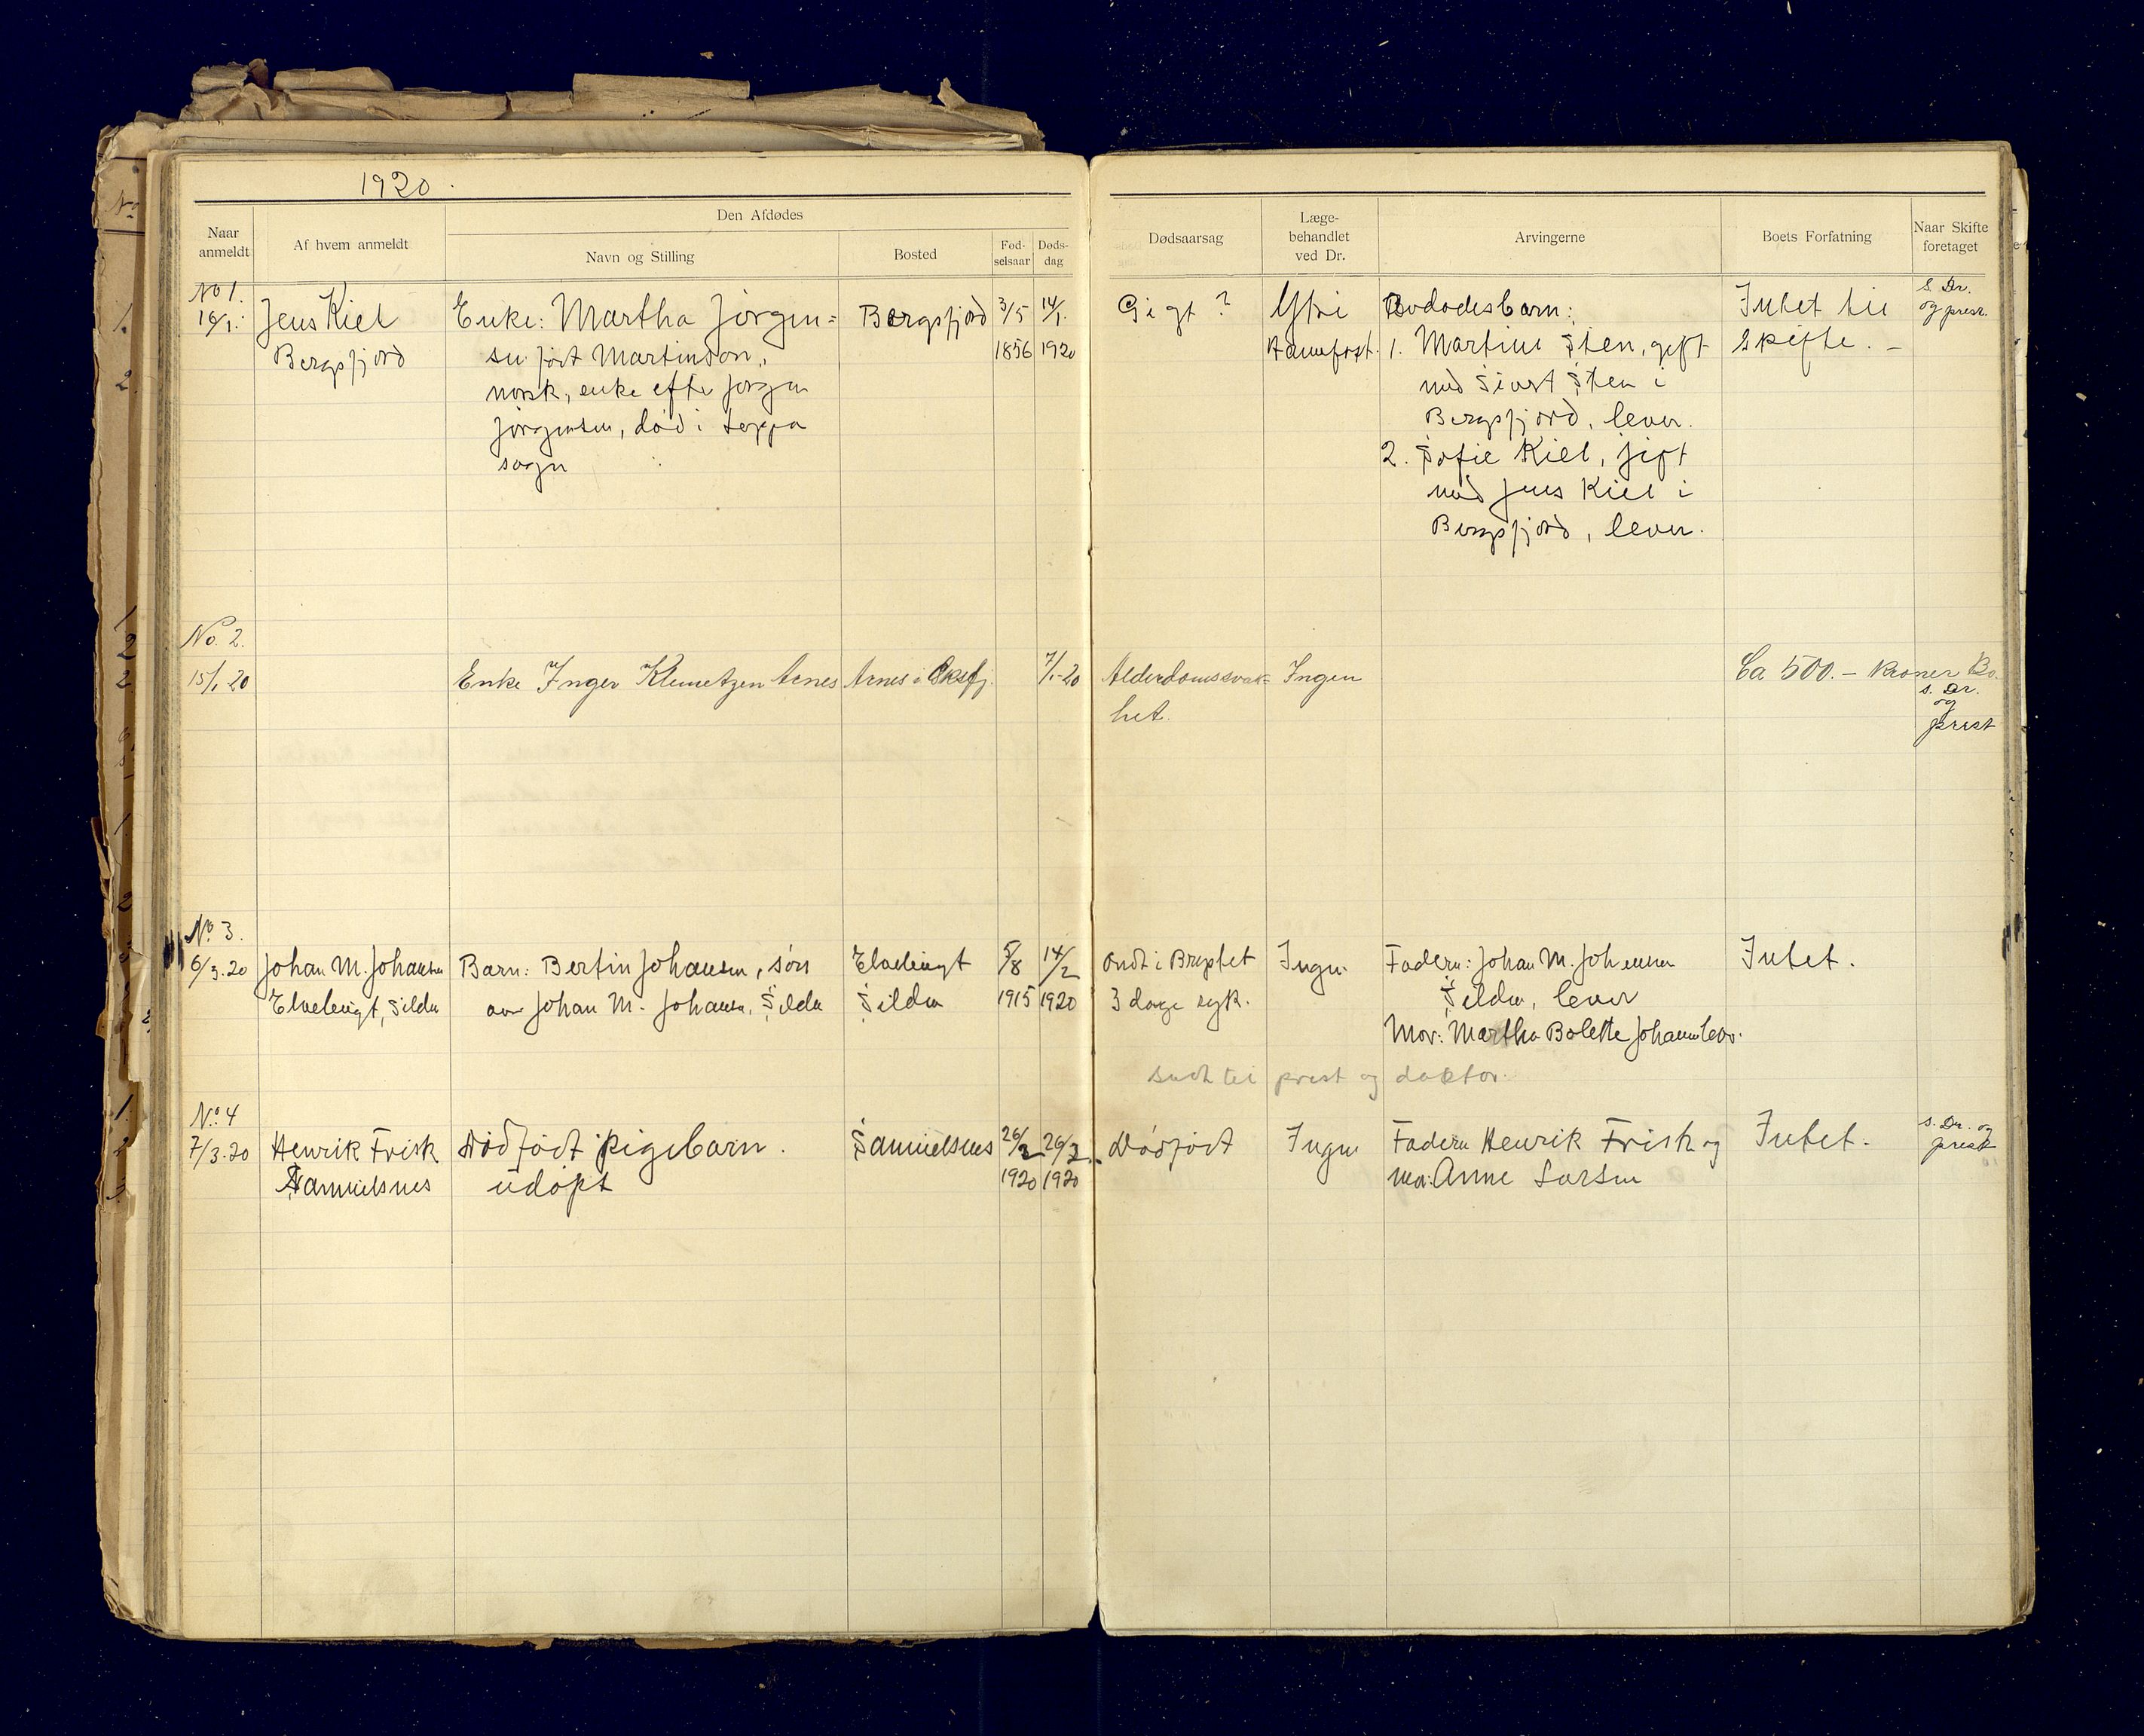 1920.
Naar anmeldt
Af hvem anmeldt
Den Afdødes
Navn og Stilling
Bosted
Fød-
selsaar
Døds-
dag
Dødsaarsag
Læge-
behandlet
ved Dr.
Arvingerne
Boets Forfatning
Naar Skifte
foretaget
No 1.
16/1.
Jens Kiel
Bergsfjord
Enke: Martha Jörgen=
sen födt Martinson,
norsk, enke efter Jörgen
Jörgensen, död i Loppa
sogn
Bergsfjord
3/5
1856
14/1.
1920
Gigt ?
Ytri
1. Martine Sten, gift
med Sivert Sten i
Bergsfjord, lever.
2. Sofie Kiel, gift
med Jens Kiel i
Bergsfjord, lever.
Intet til
Skifte. –
S. Dr.
og prest.
No. 2.
15/1-20
Enke Inger Klemetzen Arnes
Arnes i Øksfj.
7/1-20
Alderdomssvak=
het.
Ingen
Ca 500.- Kroner Bo.
s. Dr.
og
prest
No. 3.
6/3.20
Johan M. Johansen
Silda
Barn: Bertin Johansen, sön
av Johan M. Johansen, Silda
Silda
5/8
1915
14/2
1920
Ondt i Brystet
3 dage syk.
Ingen
Faderen: Johan M. Johansen
Silda, lever
Mor: Martha Bolette Johansen lever.
Intet.
sendt til prest og doktor.
No. 4
7/3.20
Henrik Frisk
Samuelsnes
Dödfödt pigebarn.
udöpt
Samuelsnes
26/2
1920
26/2.
1920
Dödfödt
Ingen
Faderen Henrik Frisk og
mor: Anne Larsen
Intet.
s. Dr. og
prest